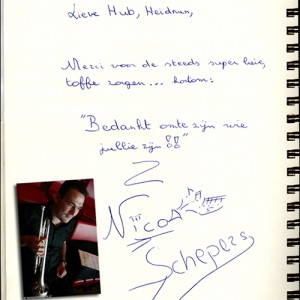 Lieve Hub, Heidrun,
Merci voor de steeds super leie,
toffe zorgen... kortom:
"Bedankt omte zijn wie
jullie zijn!!"
Nico
Schepers